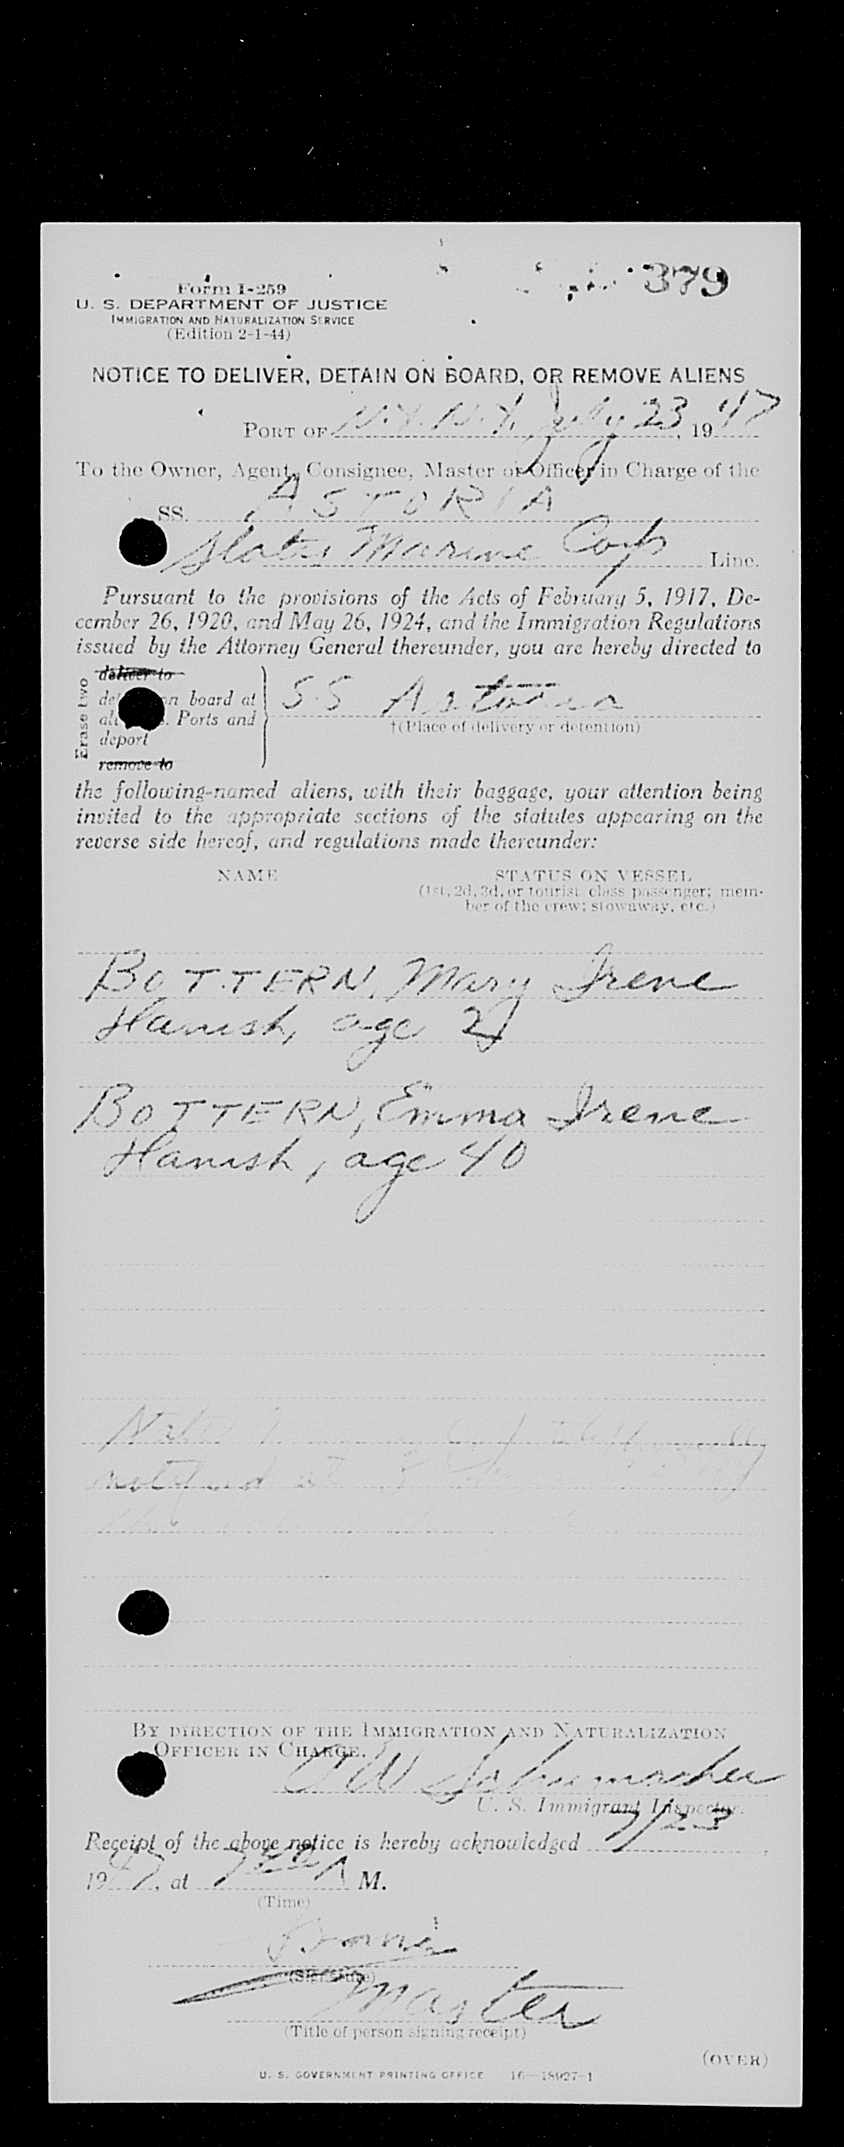 Form I-259
379
U. S. DEPARTMENT OF JUSTICE
IMMIGRATION AND NATURALIZATION SERVICE
(Edition 2-1-44)
NOTICE TO DELIVER, DETAIN ON BOARD, OR REMOVE ALIENS
PORT OF N.Y. N.Y. July 23, 1947
To the Owner, Agent, Consignee, Master or Officer in Charge of the
SS. ASTORIA
States Marine Corp Line.
Pursuant to the provisions of the Acts of February 5, 1917, De-
cember 26, 1920, and May 26, 1924, and the Immigration Regulations
issued by the Attorney General thereunder, you are hereby directed to
Erase two
deliver to
on board at
Ports and
deport
remove to
SS Astoria
†(Place of delivery or detention)
the following-named aliens, with their baggage, your attention being
invited to the appropriate sections of the statutes appearing on the
reverse side hereof, and regulations made thereunder:
NAME
STATUS ON VESSEL
(1st, 2d, 3d, or tourist class passenger; mem-
ber of the crew; stowaway, etc.)
BOTTERN, Mary Irene
Hanish, age 21
BOTTERN, Emma Irene
Hanish, age 40
notified at
BY DIRECTION OF THE IMMIGRATION AND NATURALIZATION
OFFICER IN CHARGE.
Schumacher
U. S. Immigrant Inspector.
Receipt of the above notice is hereby acknowledged 7/23
1947, at A M.
(Time)
(Signature)
Master
(Title of person signing receipt)
(OVER)
U. S. GOVERNMENT PRINTING OFFICE 16—18927-1